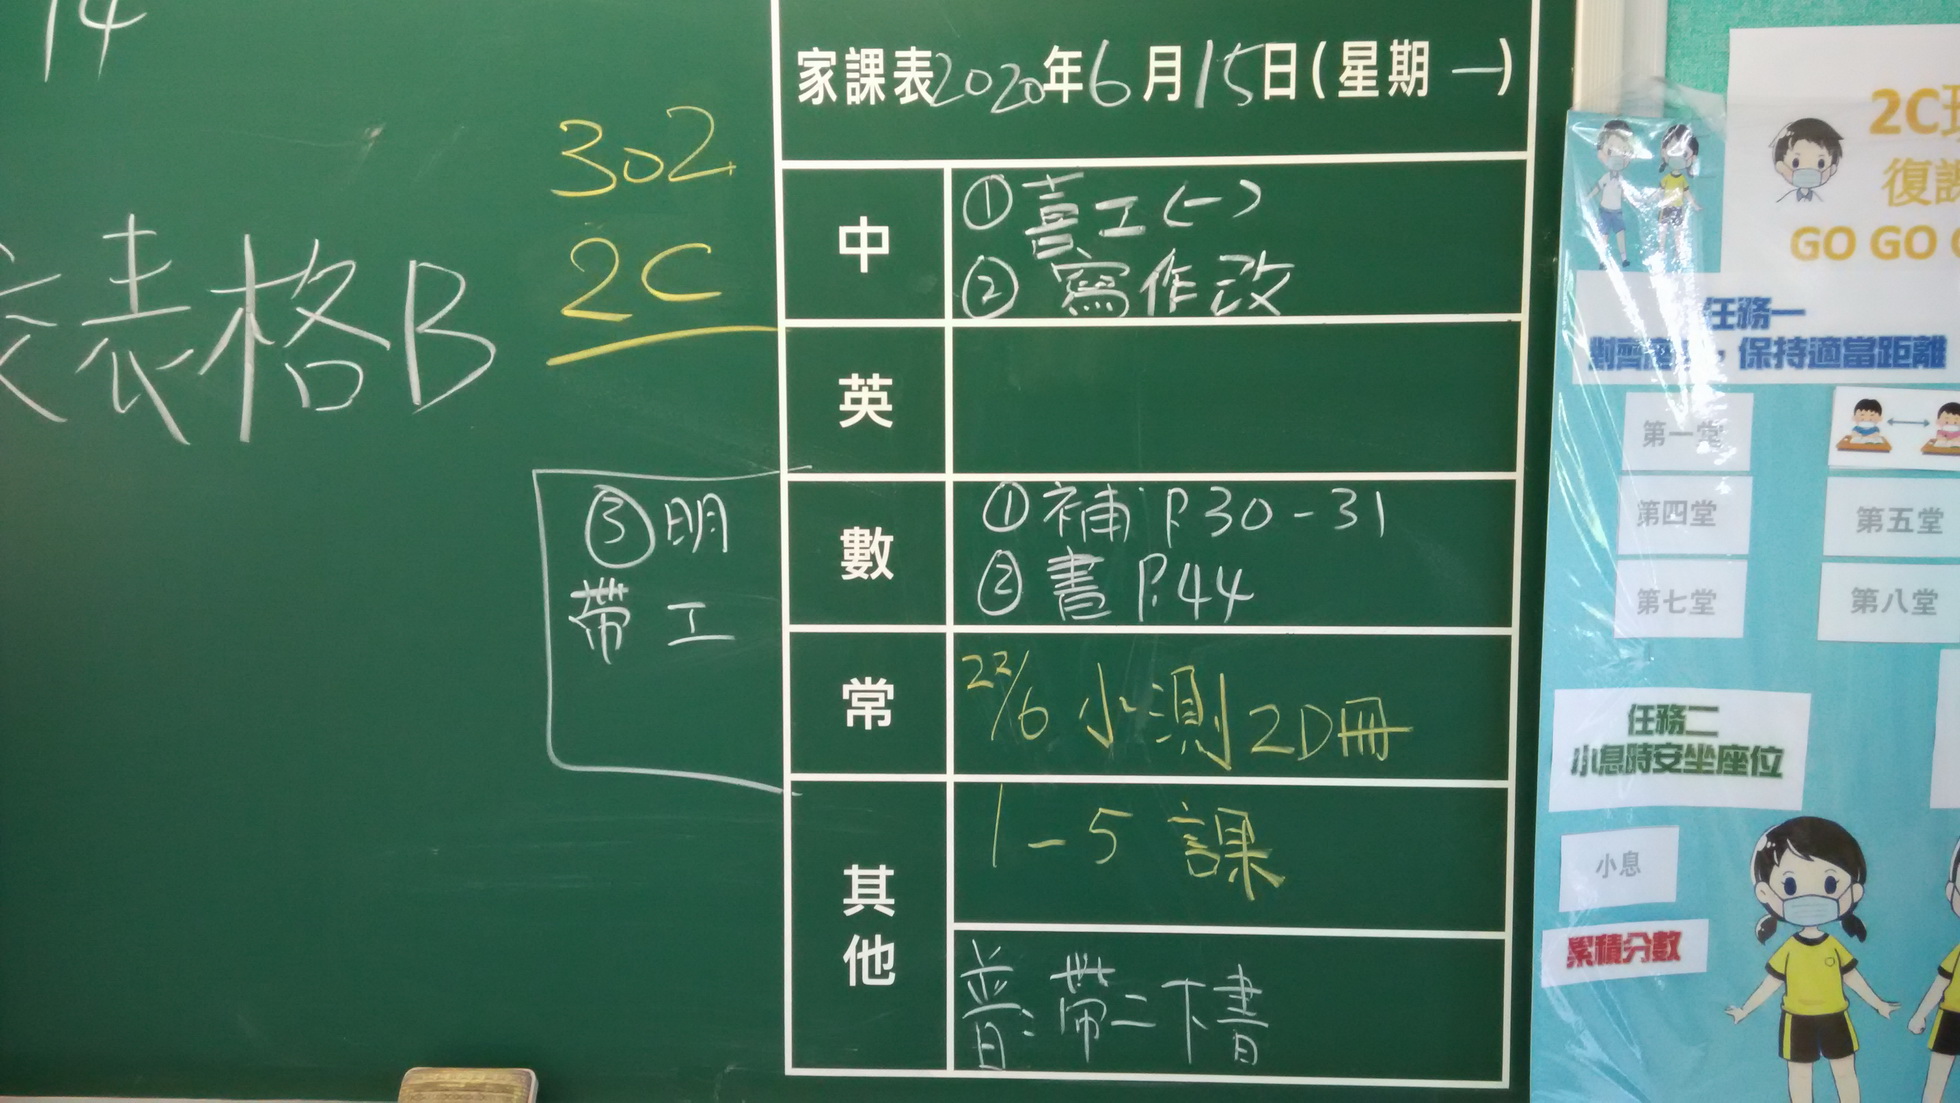 14
表格B
302
2C
③明
帶工
家課表2020年6月15日(星期一)
中
①喜工(一)
②寫作改
英
數
①補P.30-31
②書P.44
常
22/6小測2D冊
其他
1-5課
普:帶二下書
2C
復
GO GO
任務一
劃齊,保持適當距離
第一堂
第四堂
第五堂
第七堂
第八堂
任務二
小息時安坐座位
小息
累積分數